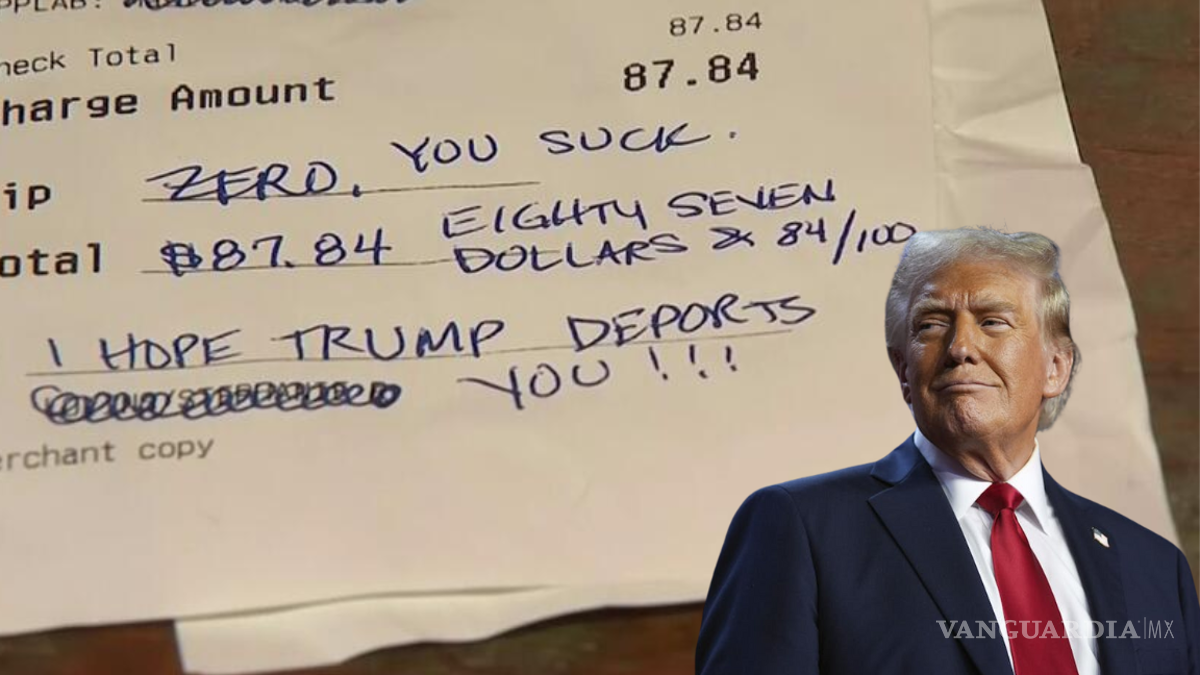 87.84
heck Total
harge Amount 87.84
ip ZERO, YOU SUCK.
otal $87.84 EIGHTY SEVEN
DOLLARS & 84/100
I HOPE TRUMP DEPORTS
YOU!!!
erchant copy
VANGUARDIA|MX